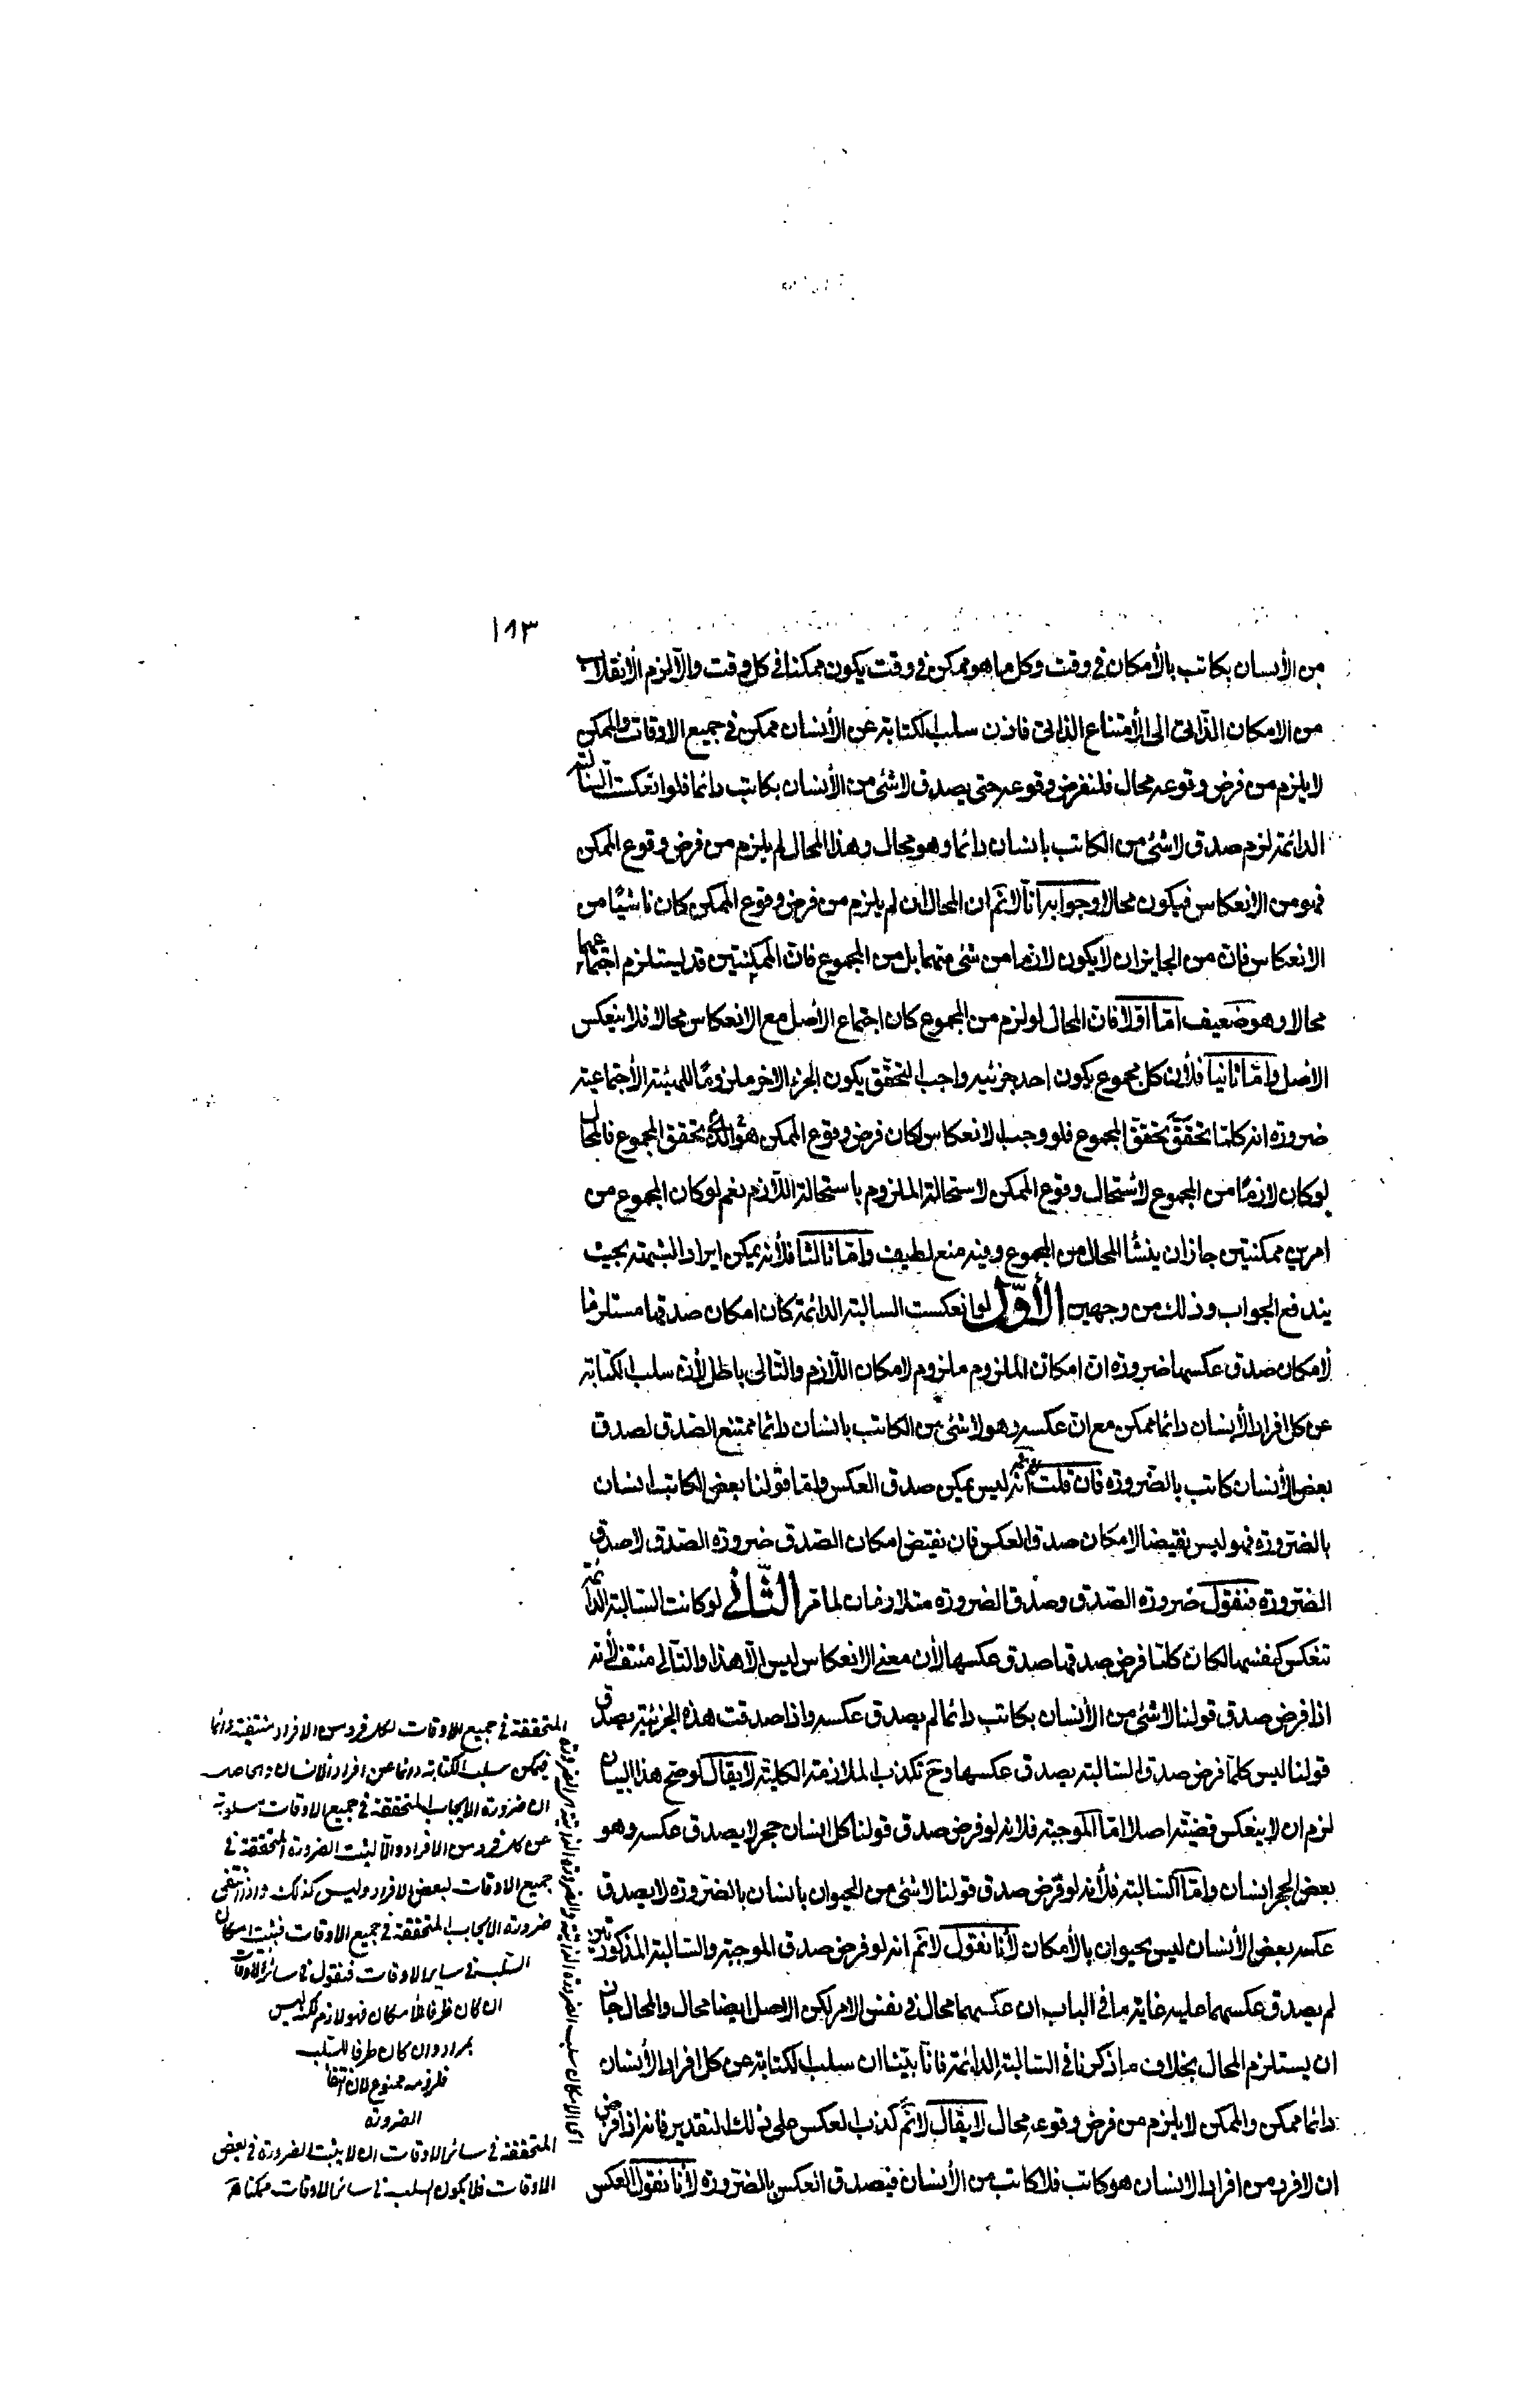 ١٨٣
من الأنسان بكاتب بالأمكان فى وقت وكل ما هو ممكن فى وقت يكون ممكنا فى كل وقت والّا لزم الأنقلاب
من الامكان الذّاتى الى الأمتناع الذاتى فاذن سلب الكتابة عن الأنسان ممكن فى جميع الاوقات والممكن
لا يلزم من فرض وقوعه محال فلنفرض وقوعه حتى يصدق لا شئ من الأنسان بكاتب دائما فلو انعكست السّالبة
الدائمة لزم صدق لا شئ من الكاتب بانسان دائما وهو محال وهذا المحال لم يلزم من فرض وقوع الممكن
فهو من الانعكاس فيكون محالا وجوابه انّا لا نم ان المحال ان لم يلزم من فرض وقوع الممكن كان ناشيًا من
الانعكاس فان من الجايز ان لا يكون لازما من شئ منهما بل من المجموع فان الممكنتين قد يستلزم اجتماعهما
محالا وهو ضعيف امّا اوّلا فان المحال لو لزم من المجموع كان اجتماع الأصل مع الانعكاس محالا فلا ينعكس
الأصل وامّا ثانيا فلأن كل مجموع يكون احد جزئيه واجب التحقّق يكون الجزء الاخر ملزومًا للهيئة الأجتماعية
ضرورة انه كلما تحقّق تحقق المجموع فلو وجب الانعكاس لكان فرض وقوع الممكن هو الذى تحقق المجموع فالمحال
لو كان لازمًا من المجموع لأستحال وقوع الممكن لاستحالة الملزوم باستحالة اللّازم نعم لو كان المجموع من
امرين ممكنتين جاز ان ينشأ المحال من المجموع وفيه منع لطيف وامّا ثالثا فلأنه يمكن ايراد الشبهة بحيث
يندفع الجواب وذلك من وجهين الأوّل لو انعكست السالبة الدائمة كان امكان صدقها مستلزما
لأمكان صدق عكسها ضرورة ان امكان الملزوم ملزوم لامكان اللّازم والتّالى باطل لأن سلب الكتابة
عن كل افراد الأنسان دائما ممكن مع ان عكسه وهو لا شئ من الكاتب بانسان دائما ممتنع الصّدق لصدق
بعض الأنسان كاتب بالضّرورة فان قلت انه ليس يمكن صدق العكس وامّا قولنا بعض الكاتب انسان
بالضّرورة فهو ليس نقيضا لامكان صدق العكس فان نقيض امكان الصّدق ضرورة الصّدق لا صدق
الضّرورة فنقول ضرورة الصّدق وصدق الضرورة متلازمان لما مر الثّانى لو كانت السّالبة الدائمة
تنعكس كنفسها لكان كلما فرض صدقها صدق عكسها لأن معنى الانعكاس ليس الّا هذا والتّالى منتف لأنه
اذا فرض صدق قولنا لا شئ من الأنسان بكاتب دائما لم يصدق عكسه واذا صدقت هذه الجزئية يصدق
قولنا ليس كلّما فرض صدق السّالبة يصدق عكسها وح تكذب الملازمة الكلية لا يقال لو صح هذا البيان
لزم ان لا ينعكس قضيّة اصلا امّا الموجبة فلانه لو فرض صدق قولنا كل انسان حجر لا يصدق عكسه وهو
بعض الحجر انسان وامّا السّالبة فلأنه لو فرض صدق قولنا لا شئ من الحيوان بانسان بالضّرورة لا يصدق
عكسه بعض الأنسان ليس بحيوان بالأمكان لأنا نقول لا نم انه لو فرض صدق الموجبة والسّالبة المذكورتين
لم يصدق عكسهما عليه غاية ما فى الباب ان عكسهما محال فى نفس الامر لكن الاصل ايضا محال والمحال جاز
ان يستلزم المحال بخلاف ما ذكرنا فى السّالبة الدائمة فانّا بيّنا ان سلب الكتابة عن كل افراد الأنسان
دائما ممكن والممكن لا يلزم من فرض وقوعه محال لا يقال لا نم كذب العكس على ذلك التقدير فانه اذا فرض
ان لا فرد من افراد الانسان هو كاتب فلا كاتب من الأنسان فيصدق العكس بالضّرورة لأنا نقول العكس
المتحققة فى جميع الاوقات لكل فرد من الافراد منتفية دائما
فيمكن سلب الكتابة دائما عن افراد الانسان والحاصل
ان ضرورة الايجاب المتحققة فى جميع الاوقات مسلوبة
عن كل فرد من الافراد والّا لثبت الضرورة المتحققة فى
جميع الاوقات لبعض الافراد وليس كذلك واذا انتفى
ضرورة الايجاب المتحققة فى جميع الاوقات فيثبت امكان
السّلب فى ساير الاوقات فنقول فى سائر الاوقات
ان كان ظرفا للامكان فهو لازم لكنه ليس
بمراد وان كان ظرفا للسّلب
فلزومه ممنوع لان انتفاء
الضرورة
المتحققة فى سائر الاوقات ان لا يثبت الضرورة فى بعض
الاوقات فلا يكون السلب فى سائر الاوقات ممكنا